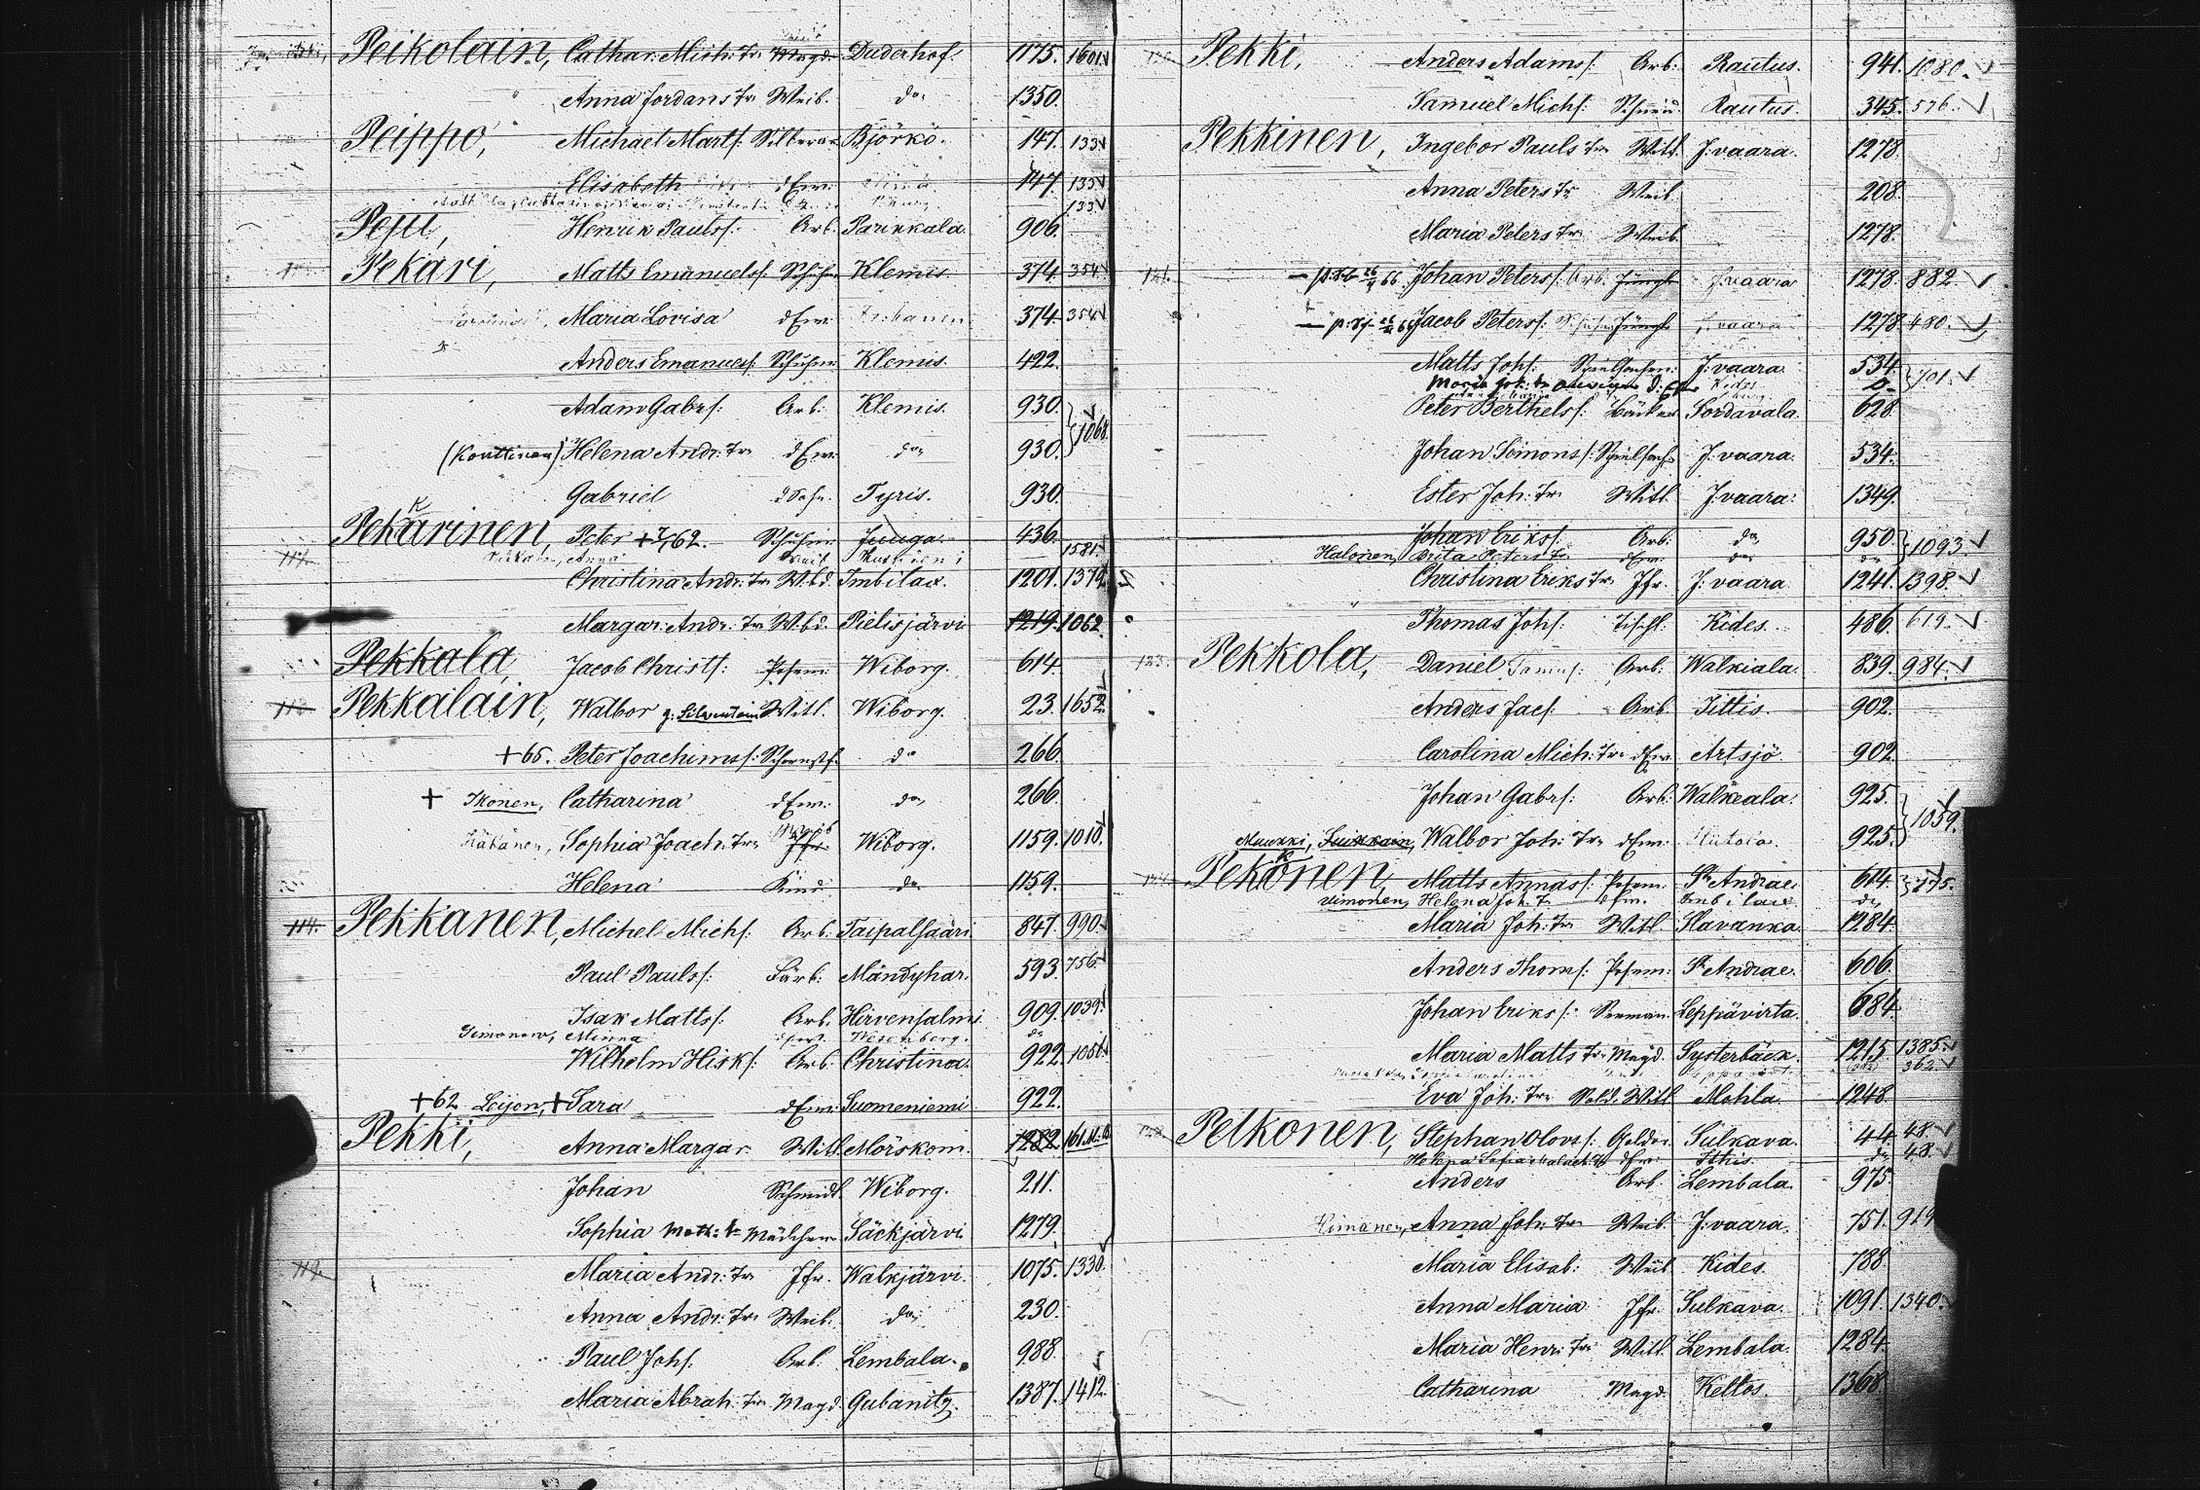 Peikolain, Cathar. Mich: Tr. Magd. Duderhof. 1175. 1601
Anna Jordans Tr Weib. do 1350.
Peippo, Michael Marts: Björkö. 147. 133
Elisabeth dEw: 147. 133
133
Henrik Pauls: Arb. Parikkala. 906.
Pekari, Matts Emanuels: Schuhm Klemis. 374. 354
Maria Lovisa dEw: 374. 354
Anders Emanuels: Schuhm. Klemis. 422.
Adam Gabrs: Arb: Klemis. 930.
1068
(Kouttinen) Helena Andr: Tr. dEw: do 930.
Gabriel d Sohn. Tyris. 930.
Pekarinen, Peter + 62. Schuhm. 436.
Anna Weib 1581
Christina Andr: Tr. Wbd. Imbilax. 1201. 1379.
Margar. Andr: Tr. Wbd. Pielisjärvi 1219. 1062.
Pekkala, Jacob Christs: Posem: Wiborg. 614.
Pekkalain, Walbor g: Silventoin Witt. Wiborg. 23. 1652.
+ 66. Peter Joachims: Schornstf. do 266.
+ Ikonen, Catharina dEw: do 266.
Häkänen, Sophia Joach: Tr. Jfr. Wiborg. 1159. 1010.
Helena Kind do 1159.
114. Pekkanen, Michel Michs: Arb: Taipalsaari. 847. 990.
Paul Pauls: Färb: Mändyhar. 593. 756.
Isak Matts: Arb. Hirvensalmi 909. 1039.
Simonen, Minna
Wilhelm Hisk: Arb: Christina. 922. 1051.
+ 62 Leijon, + Sara dEw: Suomeniemi 922.
Pekki, Anna Margar. Witt. Mörskom. 1282.
Johan Schmidt. Wiborg. 211.
Sophia Matts: Tr Mädchen Säckjärvi 1279.
Maria Andr: Tr Jfr. Walkjärvi. 1075. 1330.
Anna Andr: Tr. Weib. do 230.
Paul Johs. Arb. Lembala. 988.
Maria Abrah: Tr. Magd. Gubanitz. 1387. 1412.
Pekki, Anders Adams: Arb: Rautus. 941. 1080.
Samuel Michs: Schneid. Rautus. 345. 576.
Pekkinen, Ingebor Pauls Tr. Witt. J. vaara. 1278.
Anna Peters Tr Weib. 208.
Maria Peters Tr. Weib. 1278.
Johan Peters: Arb. J. vaara 1278. 882.
Jacob Peters: J. vaara 1278. 480.
Matts Johs: J. vaara. 534.
701.
Maria Joh: Tr Kides
Peter Berthels: Bäcker Sordavala. 628.
Johan Simons: J. vaara. 534.
Ester Joh: Tr. Witt. J. vaara. 1349.
Johan Eriks: Arb: do 950.
1093.
Halonen, Brita Peters Tr. dEw. do do
Christina Eriks Tr. Jfr. J. vaara. 1241. 1398.
Thomas Johs: Tischl. Kides. 486. 619.
Pekkola, Daniel Arb: Walkiala. 839. 984.
Anders Jacs: Arb. Tittis. 902.
Carolina Mich: Tr. dEw. Artsjö. 902.
Johan Gabrs: Arb: Walkeala. 925.
1059.
Muukki, Walbor Joh: Tr. dEw: 925.
Pekonen, Matts Annas: Posem: St Andrae. 614.
775.
Simonen, Helena Joh. T. dEw. Imbilax do
Maria Joh: Tr. Witt. Slavanka. 1284.
Anders Thoms: Posem: St Andrae. 606.
Johan Eriks: Seeman. Leppävirta. 684.
Maria Matts Tr. Magd. Systerbäck. 1215. 1385.
362.
Eva Joh: Tr. Sold. Witt. Mohla. 1248.
Pelkonen, Stephan Olovs: Golda. Sulkava. 44. 48.
Helena Sofia dEw: Ithis. do 48.
Anders Arb. Lembala. 975.
Himanen, Anna Joh: Tr. Weib. J. vaara. 751. 919
Maria Elisab: Weib. Kides. 788.
Anna Maria Jfr. Sulkava. 1091. 1340.
Maria Henr: Tr. Witt. Lembala. 1284.
Catharina Magd. Keltos. 1368.